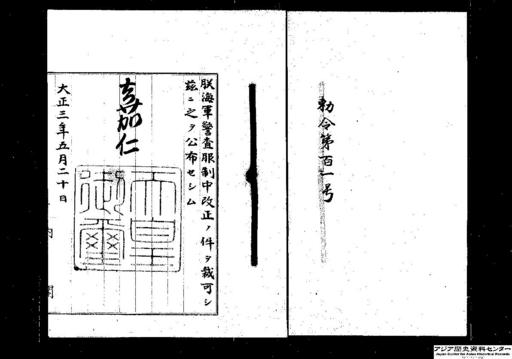 勅令第百一号
朕海軍警査服制中改正ノ件ヲ裁可シ
茲ニ之ヲ公布セシム
嘉仁
天皇御璽
大正三年五月二十日
内 閣
アジア歴史資料センター
Japan Center for Asian Historical Records